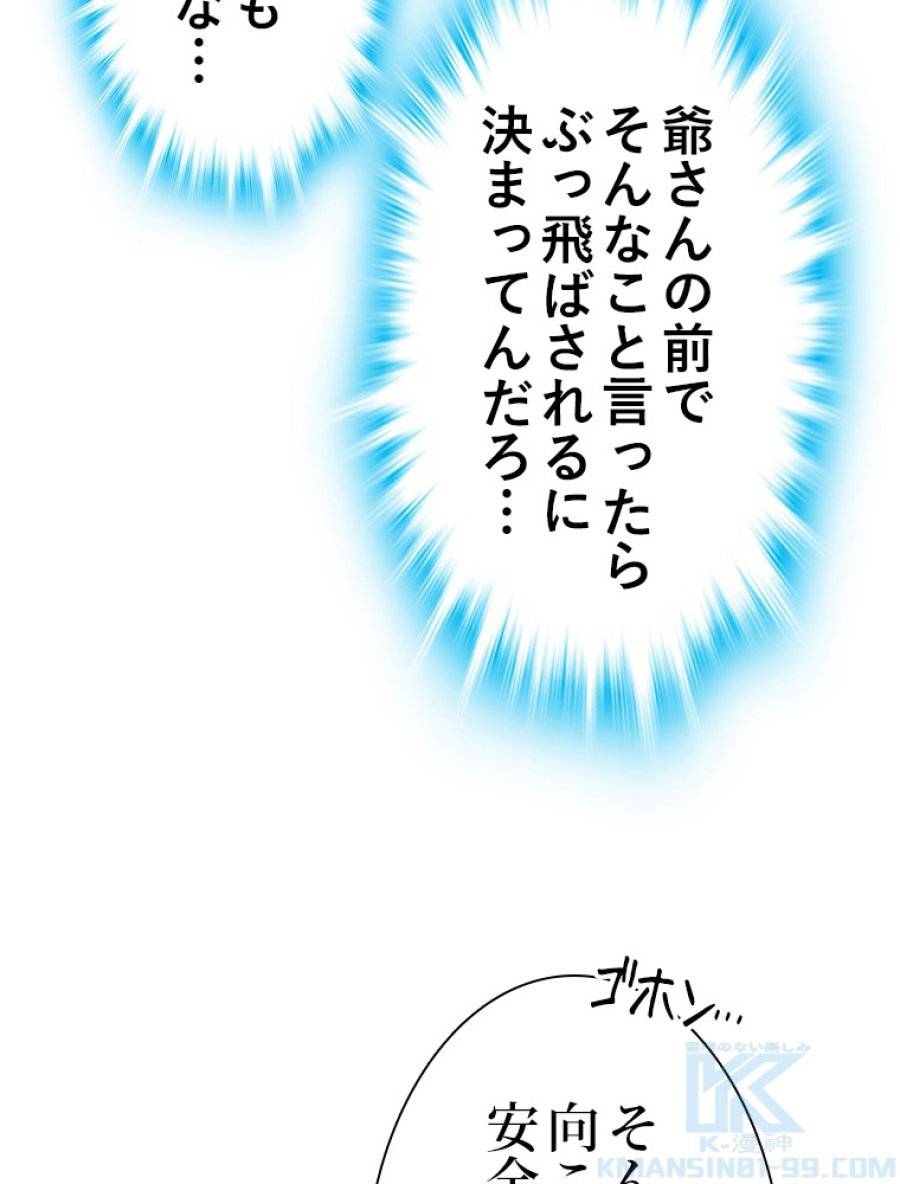 も
な…
爺さんの前で
そんなこと言ったら
ぶっ飛ばされるに
決まってんだろ…
ゴホン…
そ
向こ
安全
のない楽しみ
K-漫神
KMANSIN01-99.COM